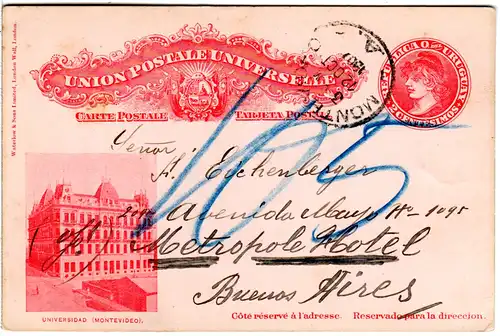 UNION POSTALE UNIVERSELLE
CARTE POSTALE TARJETA POSTAL
REPUBLICA O. DEL URUGUAY
2 CENTESIMOS 2
MONTEV
Waterlow & Sons Limited, London Wall, London.
105
Señor
A. Eichenberger
Avenida Mayo No 1095
Metropole Hotel
Buenos Aires
UNIVERSIDAD (MONTEVIDEO).
Côté réservé à l'adresse. Reservado para la direccion.